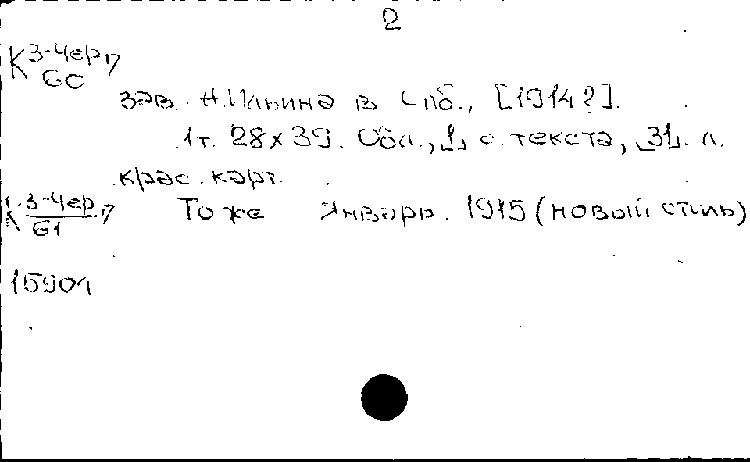 2
К 3-Чер/7
60
зав. А.Ильина в Спб., [1914?].
1т. 28х39. Обл., 1 с. текста, 31 л.
крас. карт.
К 3-Чер/7
61
То же Январь. 1915 (новый стиль)
15901